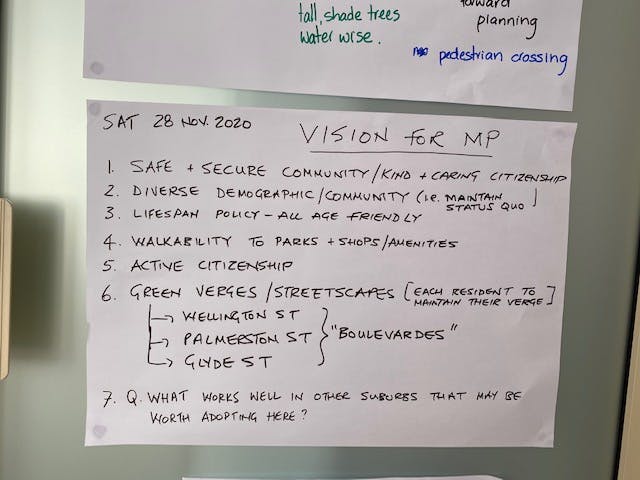 tall, shade trees
water wise.
forward
planning
pedestrian crossing
SAT 28 NOV. 2020
VISION FOR MP
1. SAFE + SECURE COMMUNITY/KIND + CARING CITIZENSHIP
2. DIVERSE DEMOGRAPHIC/COMMUNITY (i.e. MAINTAIN STATUS QUO]
3. LIFESPAN POLICY - ALL AGE FRIENDLY
4. WALKABILITY TO PARKS + SHOPS/AMENITIES
5. ACTIVE CITIZENSHIP
6. GREEN VERGES/STREETSCAPES [EACH RESIDENT TO MAINTAIN THEIR VERGE]
→ WELLINGTON ST
→ PALMERSTON ST } "BOULEVARDES"
→ GLYDE ST
7. Q. WHAT WORKS WELL IN OTHER SUBURBS THAT MAY BE
WORTH ADOPTING HERE?